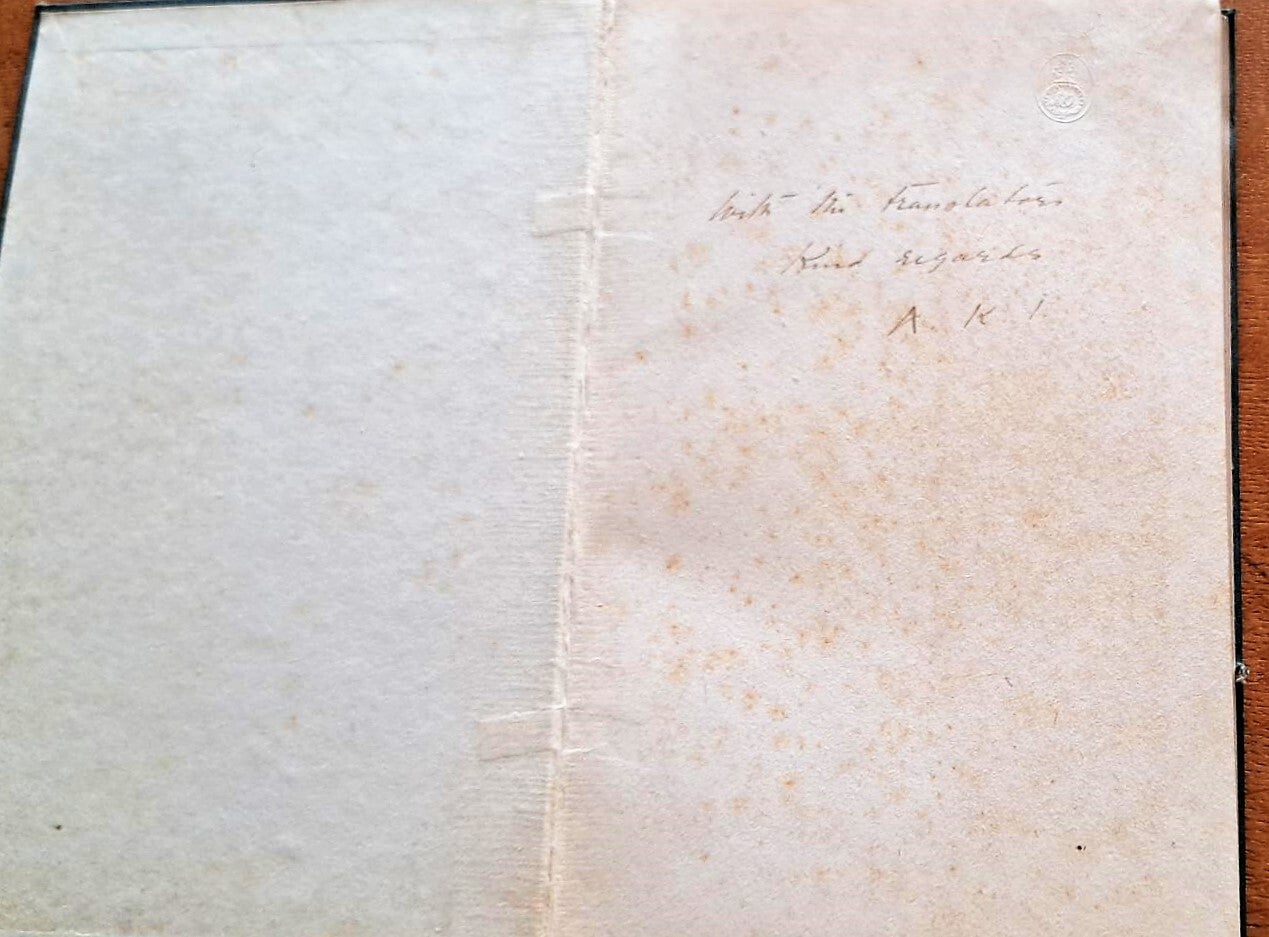 With the translators
Kind regards
A K I